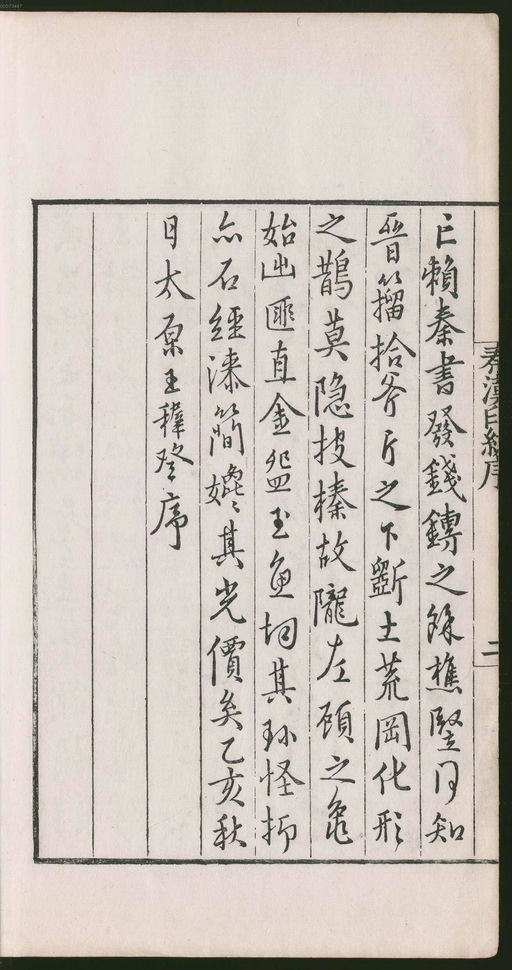 亡賴秦書發錢鎛之餘樵豎罔知
晋籀拾斧斤之下斵土荒岡化形
之鵲莫隐披榛故隴左顧之龜
始出匪直金盌玉魚均其珍怪抑
亦石經漆簡媲其光價矣乙亥秋
日太原王穉登序
秦漢印統序
二